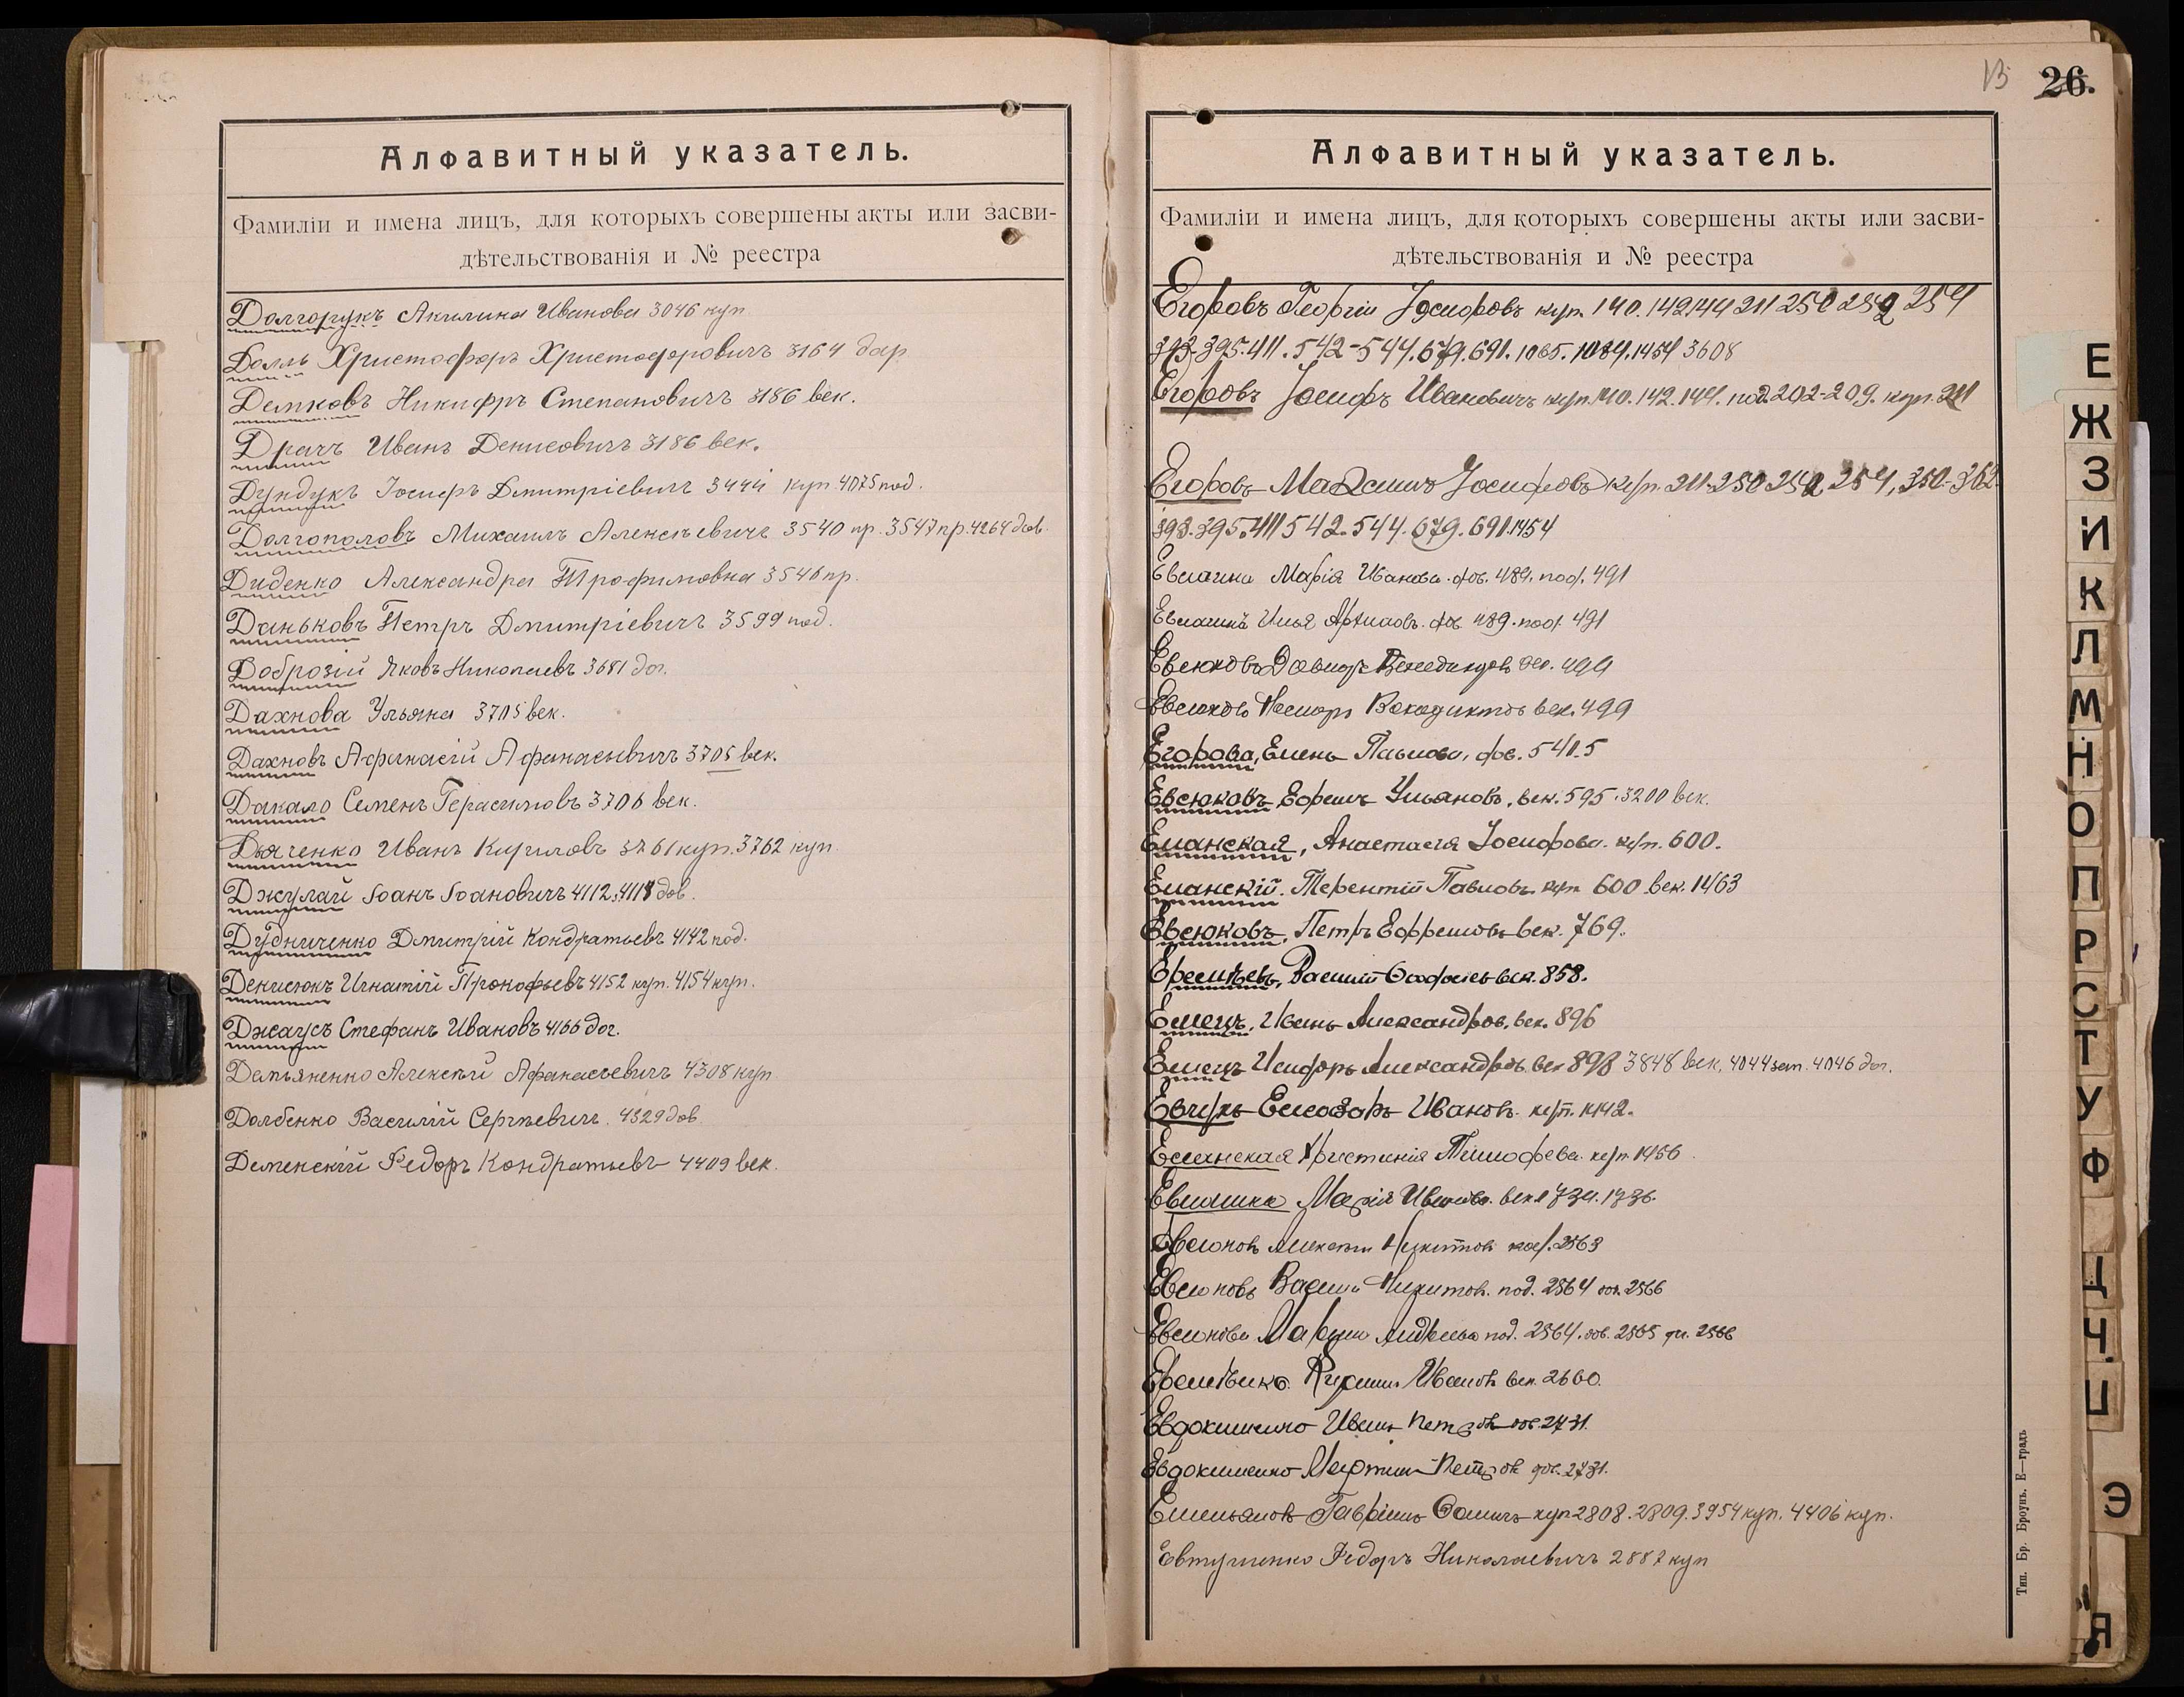 Алфавитный указатель.
Фамиліи и имена лицъ, для которыхъ совершены акты или засви-
дѣтельствованія и № реестра
Долгорукъ Акилина Иванова 3046 куп
Долль Христофоръ Христофоровичъ 3164 дар.
Демковъ Никифръ Степановичъ 3186 век.
Драчъ Иванъ Денисовичъ 3186 век.
Дундукъ Іосифъ Дмитріевичъ 3444 куп. 4075 под.
Долгополовъ Михаилъ Алексѣевичъ 3540 пр. 3547 пр. 4264 дов.
Диденко Александра Трофимовна 3546 пр.
Даньковъ Петръ Дмитріевичъ 3599 под.
Доброзій Яковъ Николаевъ 3681 дог.
Дахнова Ульяна 3705 век.
Дахновъ Афанасій Афанасьевичъ 3705 век.
Дакало Семенъ Герасимовъ 3706 век.
Дьяченко Иванъ Кириловъ 3761 куп. 3762 куп.
Джулай Іоанъ Іоановичъ 4112, 4118 дов.
Дудниченко Дмитрій Кондратьевъ 4142 под.
Денисюкъ Игнатій Прокофьевъ 4152 куп. 4154 куп.
Джаусъ Стефанъ Ивановъ 4166 дог.
Демьяненко Алексѣй Афанасьевичъ 4308 куп.
Долбенко Василій Сергѣевичъ. 4329 дов.
Деменскій Федоръ Кондратьевъ 4409 век.
13 26.
Алфавитный указатель.
Фамиліи и имена лицъ, для которыхъ совершены акты или засви-
дѣтельствованія и № реестра
Егоровъ Георгій Іосифовъ куп. 140. 142 144 211 250 252 254
393-395. 411. 542-544. 679. 691. 1065. 1084. 1454 3608
Егоровъ Іосифъ Ивановичъ куп. 140. 142. 144. под. 202-209. куп. 211
Егоровъ Максимъ Іосифовъ куп. 211-250 252, 254, 360-362
393. 395. 411 542. 544. 679. 691. 1454
Марія Иванова. 489. под. 491
Илья 489. под. 491
Евсюковъ 499
Евсюковъ век. 499
Егорова, Елена Павлова, дов. 540.5
Евсюковъ Ефремъ Ульяновъ, век. 595. 3200 век.
Еланская, Анастасія Іосифова. куп. 600.
Еланскій. Терентій Павловъ куп. 600 век. 1463
Евсюковъ, Петръ Ефремовъ век. 769.
Василій век. 858.
Емецъ, Иванъ Александров. век. 896
Емецъ Александровъ век 898 3848 век. 4044 зап. 4046 дог.
Елеазаръ Ивановъ куп. 1142.
Еланская Христинія Тимофеева. куп. 1456
Марія Иванова. век. 1734. 1736.
Евсюковъ Алексѣй Никитовъ 2563
Евсюковъ Василій Никитов. под. 2564 дог. 2566
Евсюкова Марфа Андреева под. 2564. дов. 2565 дог. 2566
Иванов. век. 2660.
Евдокименко Иванъ Петров. дов. 2731.
Евдокименко Мартинъ Петров дов. 2731.
Емельяновъ Гавріилъ куп 2808. 2809. 3954 куп. 4406 куп.
Евтушенко Федоръ Николаевичъ 2882 куп
Е
Ж
З
И
К
Л
М
Н
О
П
Р
С
Т
У
Ф
Ц
Ч
Э
Я
Тип. Бр. Броунъ. Е—градъ